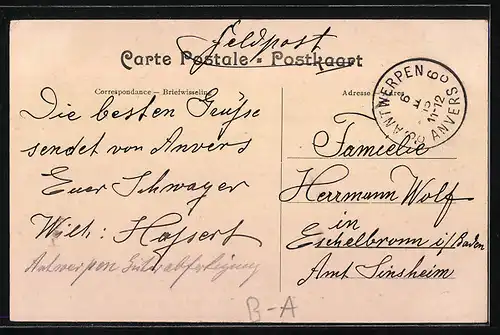 Feldpost
Carte Postale - Postkaart
Correspondance — Briefwisseling
Adresse — Adres
ANTWERPEN 6
ANVERS 6
11-12
Die besten Grüße
sendet von Anvers
Euer Schwager
Wilh: Hassert
Antwerpen Güterabfertigung
Fameelie
Herrmann Wolf
in
Eschelbronn i/Baden
Amt Sinsheim
B-A